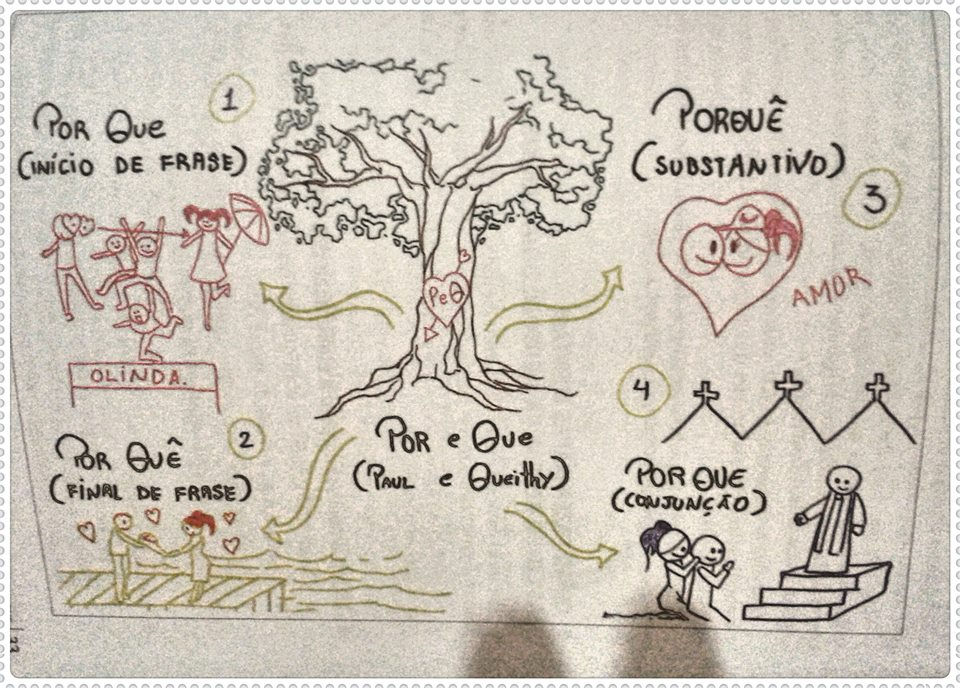 1
POR QUE
(INÍCIO DE FRASE)
OLINDA.
2
POR QUÊ
(FINAL DE FRASE)
PeQ
POR e QUE
(PAUL e QUEITHY)
PORQUÊ
(SUBSTANTIVO)
3
AMOR
4
PORQUE
(CONJUNÇÃO)